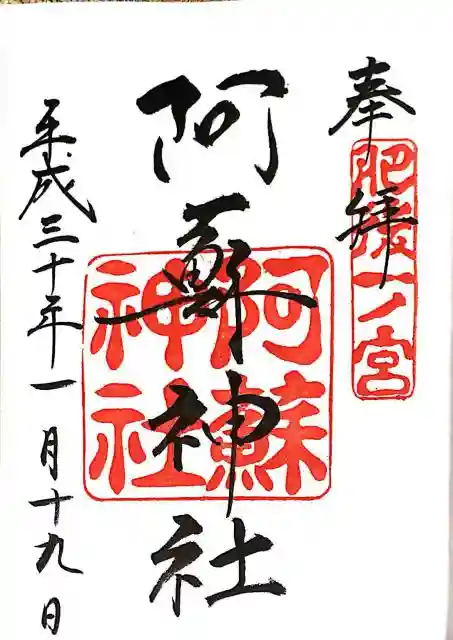 奉拝
肥後一ノ宮
阿蘇神社
阿蘇神社
平成三十年一月十九日